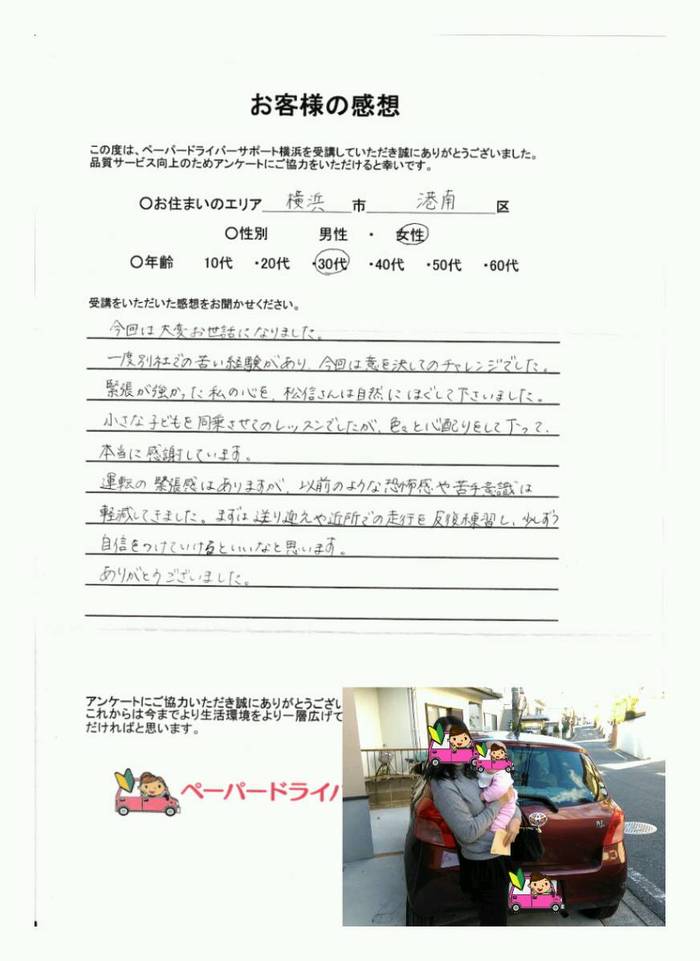 お客様の感想
この度は、ペーパードライバーサポート横浜を受講していただき誠にありがとうございました。
品質サービス向上のためアンケートにご協力をいただけると幸いです。
○お住まいのエリア 横浜 市 港南 区
○性別 男性 ・ 女性
○年齢 10代 ・20代 ・30代 ・40代 ・50代 ・60代
受講をいただいた感想をお聞かせください。
今回は大変お世話になりました。
一度別社での苦い経験があり、今回は意を決してのチャレンジでした。
緊張が強かった私の心を、松信さんは自然にほぐして下さいました。
小さな子どもを同乗させてのレッスンでしたが、色々と心配りをして下って、
本当に感謝しています。
運転の緊張感はありますが、以前のような恐怖感や苦手意識は
軽減してきました。まずは送り迎えや近所での走行を反復練習し、少しずつ
自信をつけていけるといいなと思います。
ありがとうございました。
アンケートにご協力いただき誠にありがとうござい
これからは今までより生活環境をより一層広げて
だければと思います。
ペーパードライバ